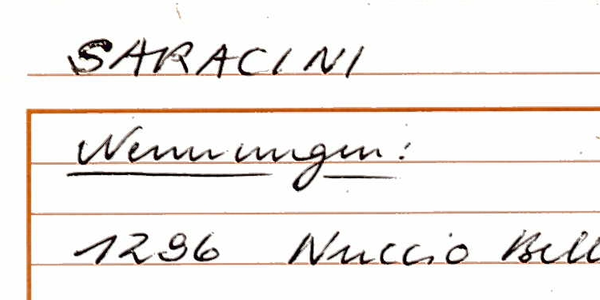 SARACINI
Nennungen:
1296 Nuccio Bell